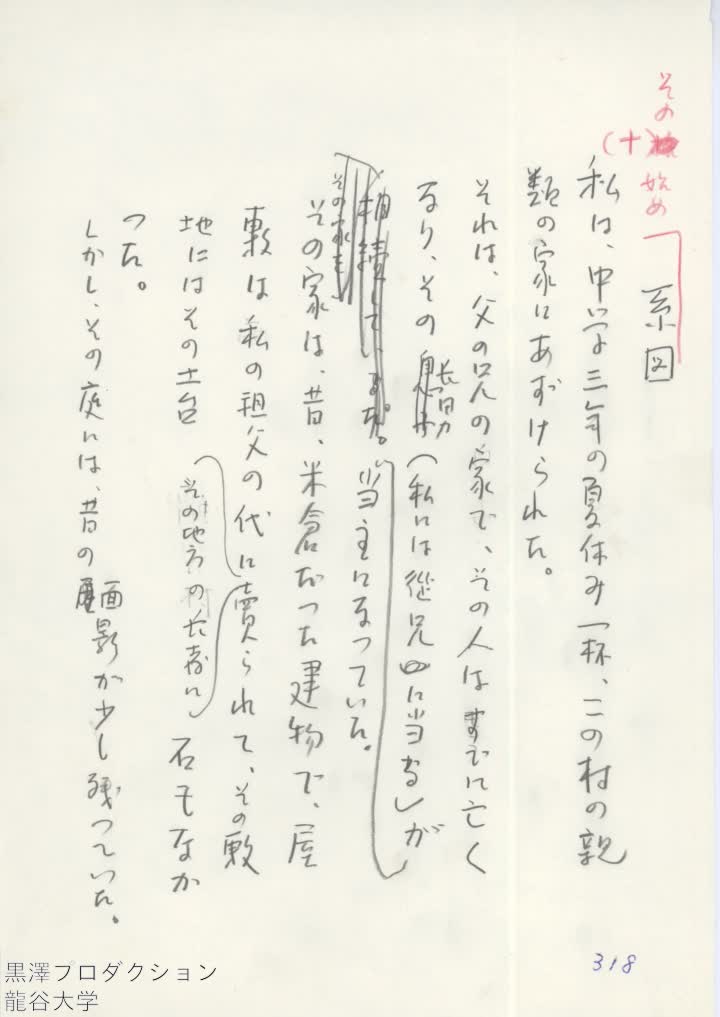 その始め
(十)
系図
私は、中学三年の夏休み一杯、この村の親
類の家にあずけられた。
それは、父の兄の家で、その人はすでに亡く
なり、その長男(私には従兄に当る)が
相続している。当主になっていた。
その家を
その家は、昔、米倉だった建物で、屋
敷は私の祖父の代に売られて、その敷
その地方の長者に
地にはその土台石もなか
った。
しかし、その庭には、昔の面影が少し残っていた。
318
黒澤プロダクション
龍谷大学